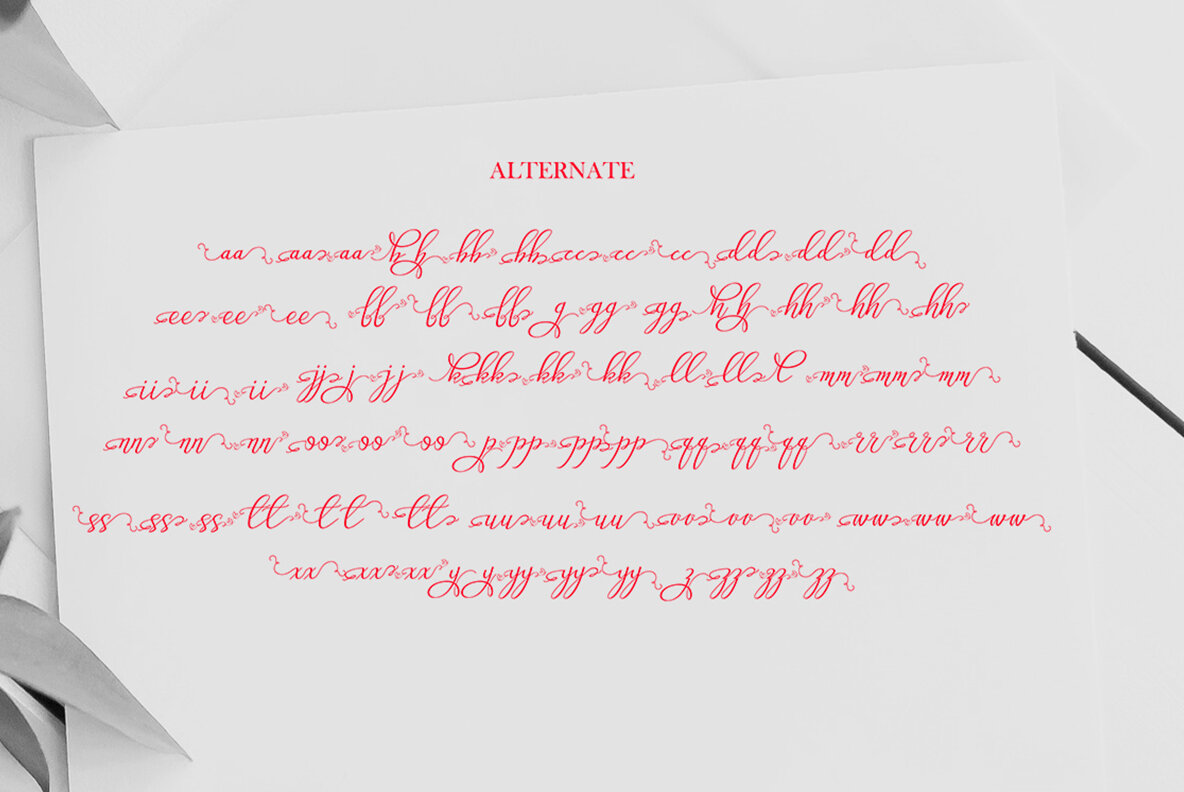 ALTERNATE
aa aa aa b b bb bb cc cc cc dd dd dd
ee ee ee ff ff ff g gg gg h h hh hh hh
ii ii ii jj j jj k kk kk kk ll ll l mm mm mm
nn nn nn oo oo oo p pp pp pp qq qq qq rr rr rr
ss ss ss tt tt tt uu uu uu vv vv vv ww ww ww
xx xx xx y y yy yy yy z zz zz zz